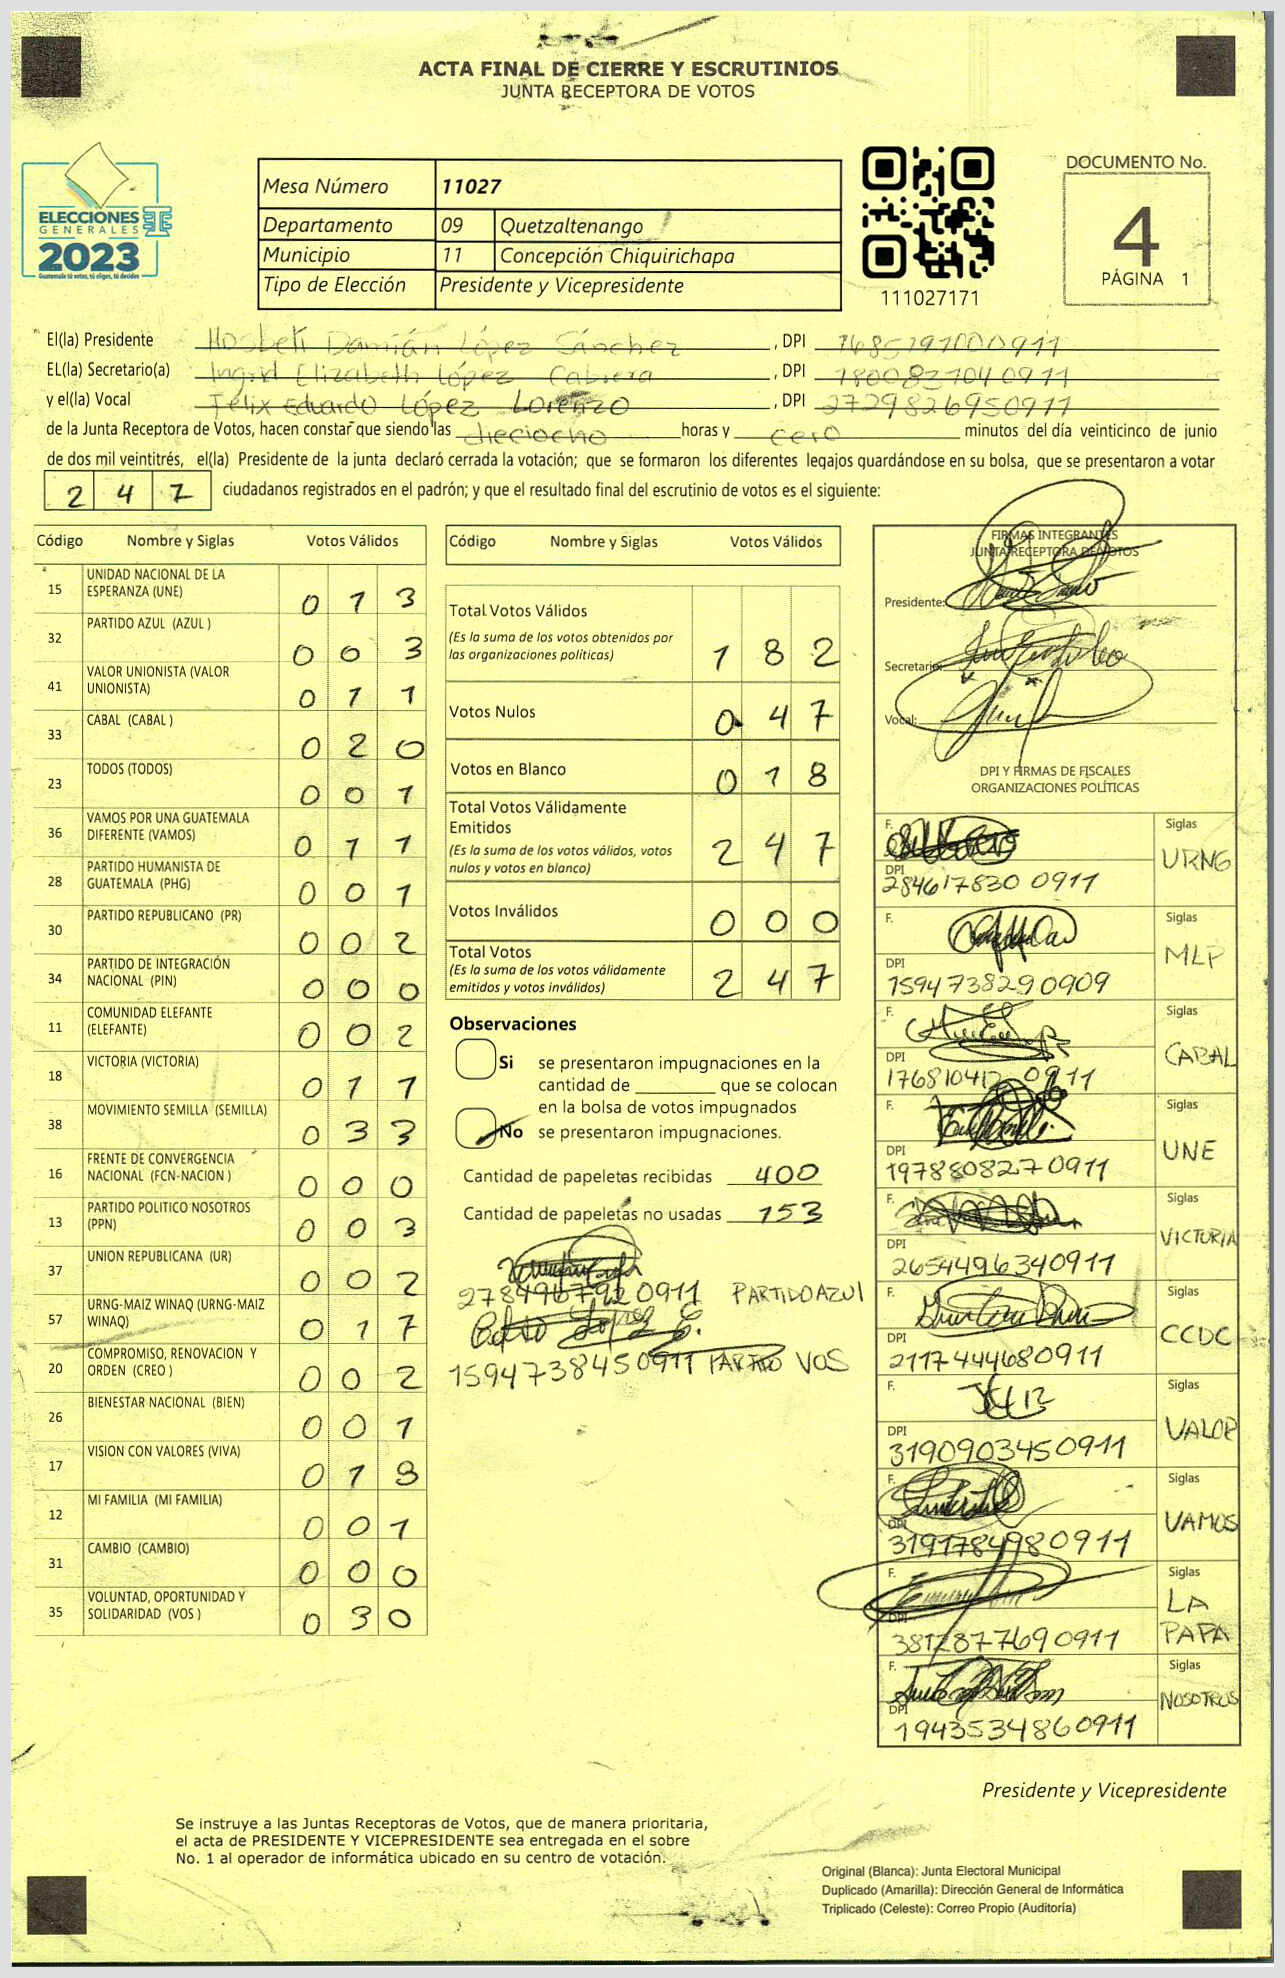 ACTA FINAL DE CIERRE Y ESCRUTINIOS
JUNTA RECEPTORA DE VOTOS
ELECCIONES
GENERALES
2023
Guatemala tú votas, tú eliges, tú decides
Mesa Número 11027
Departamento 09 Quetzaltenango
Municipio 11 Concepción Chiquirichapa
Tipo de Elección Presidente y Vicepresidente
111027171
DOCUMENTO No.
4
PÁGINA 1
El(la) Presidente Damián López Sánchez, DPI
EL(la) Secretario(a) Ingrid Elizabeth López Cabrera, DPI
y el(la) Vocal Félix Eduardo López Lorenzo, DPI 2729826950911
de la Junta Receptora de Votos, hacen constar que siendo las dieciocho horas y cero minutos del día veinticinco de junio
de dos mil veintitrés, el(la) Presidente de la junta declaró cerrada la votación; que se formaron los diferentes legajos guardándose en su bolsa, que se presentaron a votar
247 ciudadanos registrados en el padrón; y que el resultado final del escrutinio de votos es el siguiente:
Código Nombre y Siglas Votos Válidos
15 UNIDAD NACIONAL DE LA ESPERANZA (UNE) 013
32 PARTIDO AZUL (AZUL ) 003
41 VALOR UNIONISTA (VALOR UNIONISTA) 011
33 CABAL (CABAL ) 020
23 TODOS (TODOS) 001
36 VAMOS POR UNA GUATEMALA DIFERENTE (VAMOS) 011
28 PARTIDO HUMANISTA DE GUATEMALA (PHG) 001
30 PARTIDO REPUBLICANO (PR) 002
34 PARTIDO DE INTEGRACIÓN NACIONAL (PIN) 000
11 COMUNIDAD ELEFANTE (ELEFANTE) 002
18 VICTORIA (VICTORIA) 011
38 MOVIMIENTO SEMILLA (SEMILLA) 033
16 FRENTE DE CONVERGENCIA NACIONAL (FCN-NACION ) 000
13 PARTIDO POLITICO NOSOTROS (PPN) 003
37 UNION REPUBLICANA (UR) 002
57 URNG-MAIZ WINAQ (URNG-MAIZ WINAQ) 017
20 COMPROMISO, RENOVACION Y ORDEN (CREO ) 002
26 BIENESTAR NACIONAL (BIEN) 001
17 VISION CON VALORES (VIVA)
12 MI FAMILIA (MI FAMILIA) 001
31 CAMBIO (CAMBIO) 000
35 VOLUNTAD, OPORTUNIDAD Y SOLIDARIDAD (VOS ) 030
Código Nombre y Siglas Votos Válidos
Total Votos Válidos 182
(Es la suma de los votos obtenidos por
las organizaciones políticas)
Votos Nulos 047
Votos en Blanco 018
Total Votos Válidamente
Emitidos 247
(Es la suma de los votos válidos, votos
nulos y votos en blanco)
Votos Inválidos 000
Total Votos 247
(Es la suma de los votos válidamente
emitidos y votos inválidos)
Observaciones
Si se presentaron impugnaciones en la
cantidad de ________ que se colocan
en la bolsa de votos impugnados
No se presentaron impugnaciones.
Cantidad de papeletas recibidas 400
Cantidad de papeletas no usadas 153
0911 PARTIDO AZUL
1594738450911 PARTIDO VOS
FIRMAS INTEGRANTES
JUNTA RECEPTORA DE VOTOS
Presidente:
Secretario:
Vocal:
DPI Y FIRMAS DE FISCALES
ORGANIZACIONES POLÍTICAS
F. Siglas
URNG
DPI
2846178300911
F. Siglas
MLP
DPI
1594738290909
F. Siglas
CABAL
DPI
F. Siglas
UNE
DPI
1978808270911
F. Siglas
VICTORIA
DPI
2654496340911
F. Siglas
CCDC
DPI
2117444680911
F. Siglas
VALOR
DPI
3190903450911
F. Siglas
VAMOS
DPI
3191784980911
F. Siglas
LA
PAPA
DPI
3812877690911
F. Siglas
NOSOTROS
DPI
1943534860911
Presidente y Vicepresidente
Se instruye a las Juntas Receptoras de Votos, que de manera prioritaria,
el acta de PRESIDENTE Y VICEPRESIDENTE sea entregada en el sobre
No. 1 al operador de informática ubicado en su centro de votación.
Original (Blanca): Junta Electoral Municipal
Duplicado (Amarilla): Dirección General de Informática
Triplicado (Celeste): Correo Propio (Auditoría)